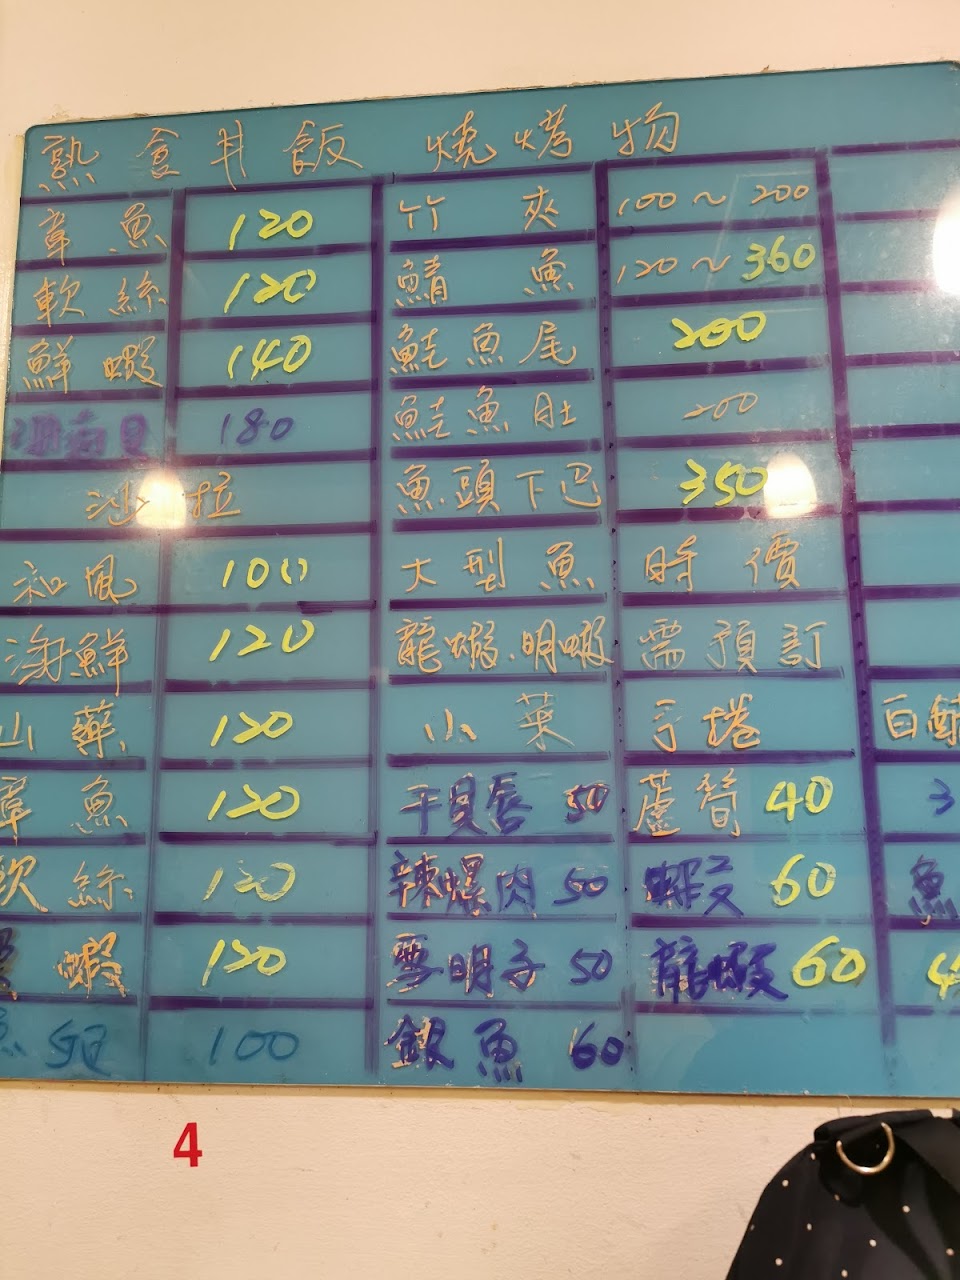 熟食丼飯 燒烤物
章魚 120 竹夾 100～200
軟絲 120 鯖魚 120～360
鮮蝦 140 鮭魚尾 200
180 鮭魚肚 200
沙拉 魚頭下巴 350
和風 100 大型魚 時價
海鮮 120 龍蝦.明蝦 需預訂
山藥 120 小菜 手捲 白
章魚 120 干貝唇 50 蘆筍 40 3
軟絲 120 辣螺肉 50 蝦 60 魚
蝦 120 雪明子 50 龍蝦 60 4
100 銀魚 60
4